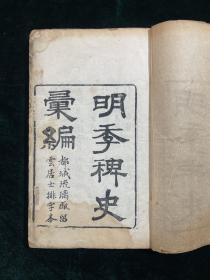 明季稗史
彙編
都城琉璃廠留
雲居士排字本